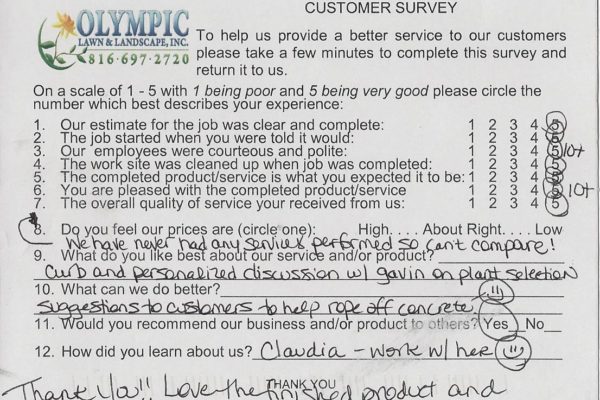 CUSTOMER SURVEY
OLYMPIC
LAWN & LANDSCAPE, INC.
816·697·2720
To help us provide a better service to our customers
please take a few minutes to complete this survey and
return it to us.
On a scale of 1 - 5 with 1 being poor and 5 being very good please circle the
number which best describes your experience:
1. Our estimate for the job was clear and complete: 1 2 3 4 5
2. The job started when you were told it would: 1 2 3 4 5
3. Our employees were courteous and polite: 1 2 3 4 5 10+
4. The work site was cleaned up when job was completed: 1 2 3 4 5
5. The completed product/service is what you expected it to be: 1 2 3 4 5
6. You are pleased with the completed product/service 1 2 3 4 5 10+
7. The overall quality of service your received from us: 1 2 3 4 5
8. Do you feel our prices are (circle one): High. . . . About Right. . . . Low
- We have never had any services performed so can't compare!
9. What do you like best about our service and/or product?
Curb and personalized discussion w/ gavin on plant selection
10. What can we do better?
suggestions to customers to help rope off concrete
11. Would you recommend our business and/or product to others? Yes No
12. How did you learn about us? Claudia - Work w/ her
THANK YOU
Thank You!! Love the finished product and